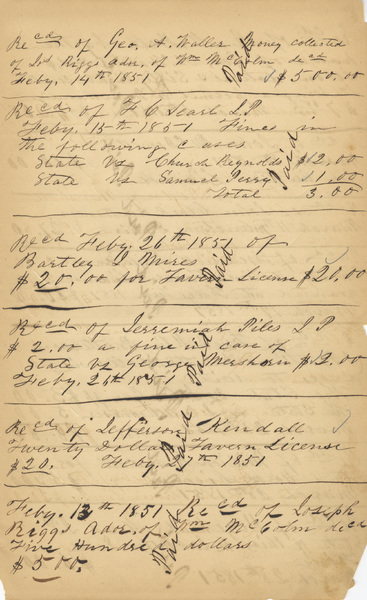 Recd of Geo. A. Waller Money collected
of Jos Riggs Adm. of Wm McColm decd
Feby. 14th 1851 Paid $500.00
Recd of F C Searl J P
Feby. 15th 1851 Fines in
the following cases
State vs Church Reynolds $2.00
State vs Samuel Perry $1.00
Total 3.00
Paid
Recd Feby. 26th 1851 of
Bartley S Mires
$20.00 for Tavern License $20.00
Paid
Recd of Jerremiah Piles J P
$2.00 a fine in case of
State vs George Mershorn $2.00
Feby. 26th 1851
Paid
Recd of Jefferson Kendall
Twenty Dollars Tavern License
$20. Feby. 1851
Paid
Feby. 13th 1851 Recd of Joseph
Riggs Ador. of Wm McColm decd
Five Hundred dollars
$500.
Paid